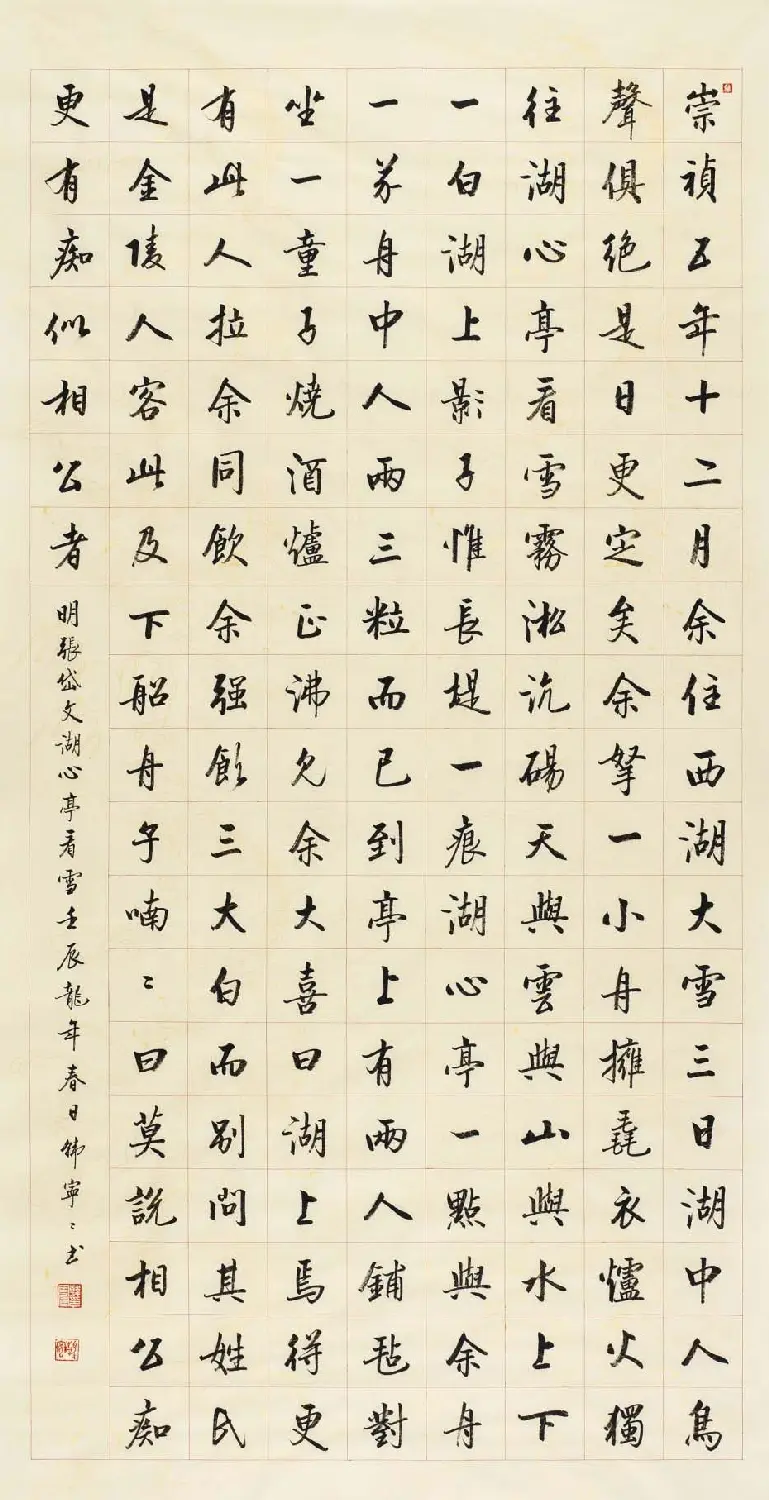 崇禎五年十二月余住西湖大雪三日湖中人鳥
聲俱絕是日更定矣余拏一小舟擁毳衣爐火獨
往湖心亭看雪霧淞沆碭天與雲與山與水上下
一白湖上影子惟長堤一痕湖心亭一點與余舟
一芥舟中人兩三粒而已到亭上有兩人鋪毡對
坐一童子燒酒爐正沸見余大喜曰湖上焉得更
有此人拉余同飲余强飲三大白而別問其姓氏
是金陵人客此及下船舟子喃〻曰莫說相公痴
更有痴似相公者
明張岱文湖心亭看雪壬辰龍年春日韓寧〻書